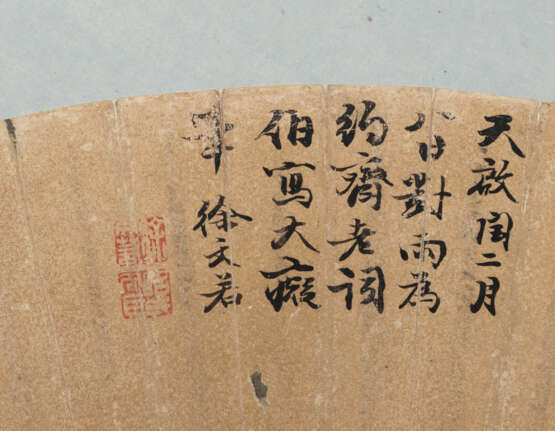 天啟閏二月
八日對雨爲
約齋老詞
伯寫大癡
筆 徐文若